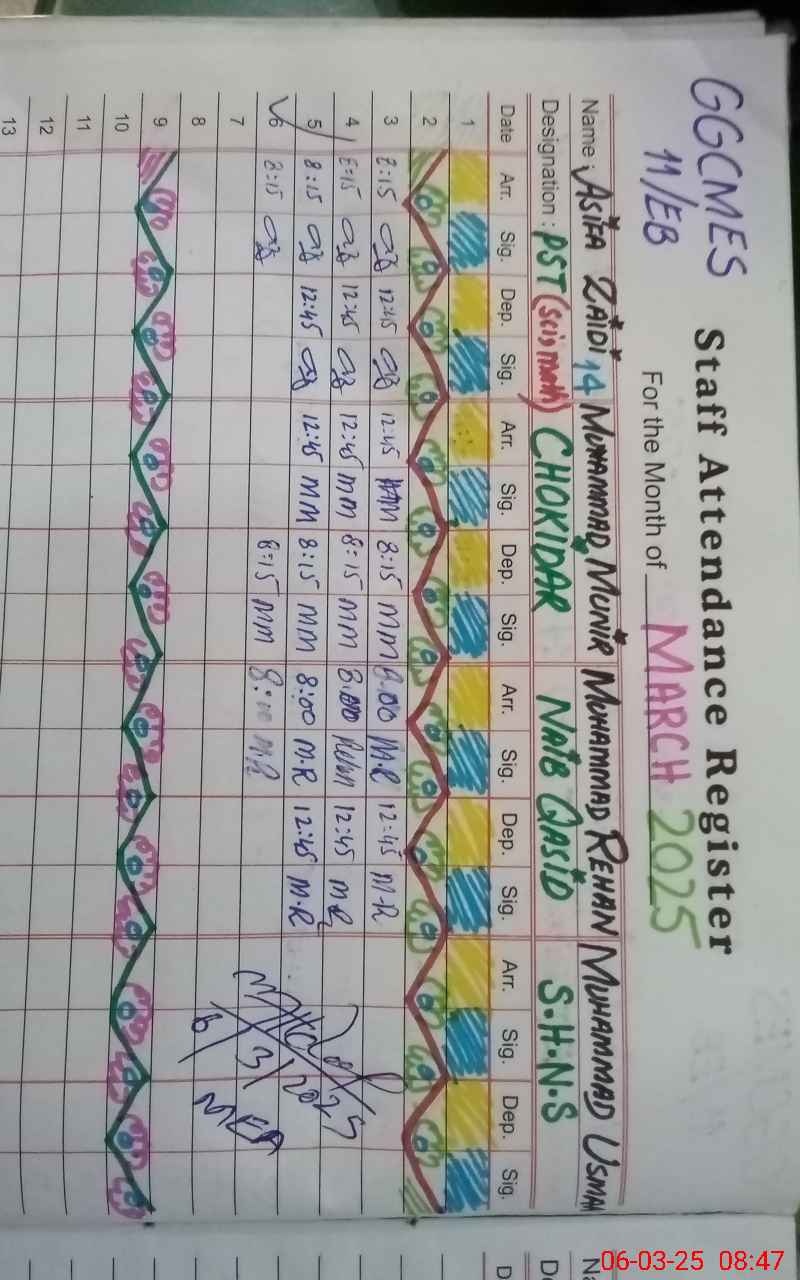 GGCMES
11/EB
Staff Attendance Register
For the Month of MARCH 2025
Name : ASIFA ZAIDI 14 MUHAMMAD MUNIR MUHAMMAD REHAN MUHAMMAD USMAN
Designation : PST (sci, math) CHOKIDAR NAIB QASID S.H.N.S
Date Arr. Sig. Dep. Sig. Arr. Sig. Dep. Sig. Arr. Sig. Dep. Sig. Arr. Sig. Dep. Sig.
1
2
3 8:15 12:45 12:45 MM 8:15 MM 8:00 M.R 12:45 M.R
4 8:15 12:45 12:45 MM 8:15 MM 8:00 Rehan 12:45 M.R
5 8:15 12:45 12:45 MM 8:15 MM 8:00 M.R 12:45 M.R
6 8:15 8:15 MM 8:00 M.R
7
8
9
10
11
12
13
6/3/2025
MEA
06-03-25 08:47